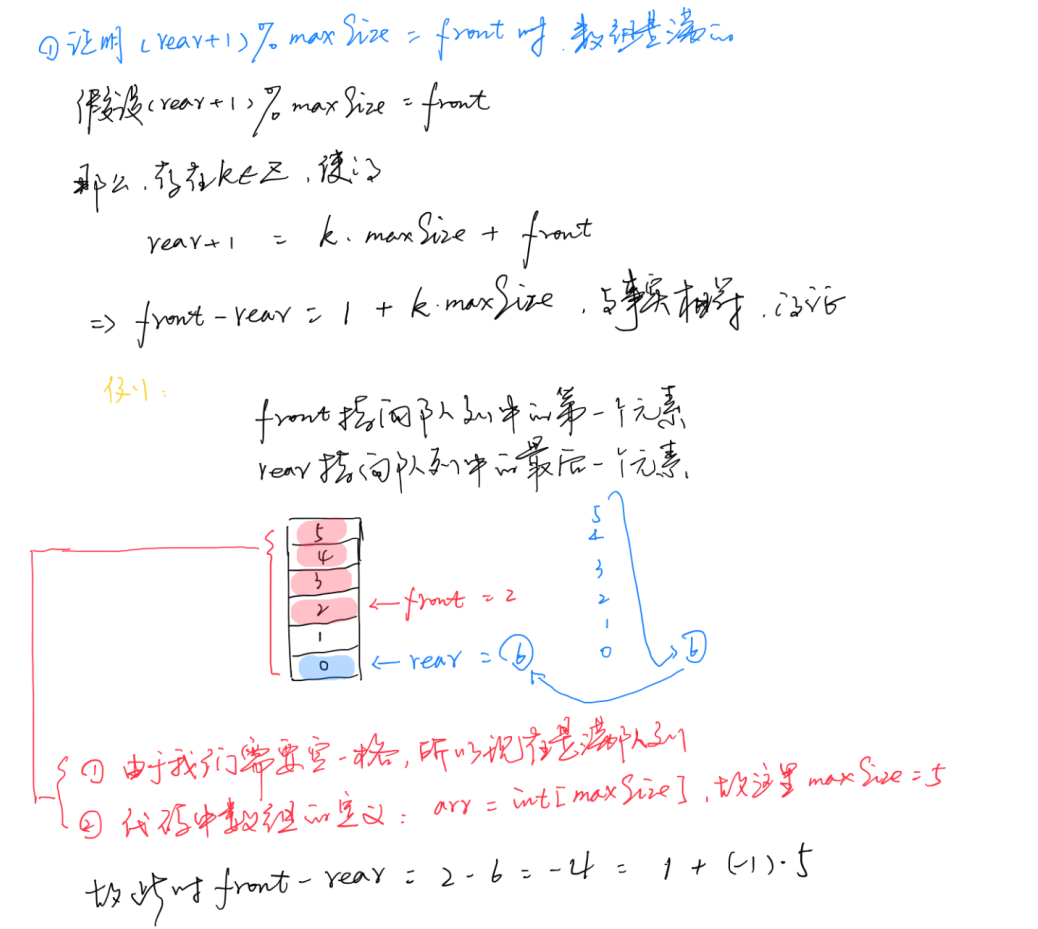 ① 证明 (rear+1)% maxSize = front 时,数组是满的
假设(rear+1)% maxSize = front
那么,存在k∈Z,使得
rear+1 = k·maxSize + front
=> front-rear = 1 + k·maxSize,与事实相符,得证
例:
front指向队列中的第一个元素
rear指向队列中的最后一个元素
5
4
3
2 ← front = 2
1
0 ← rear = 6
5
4
3
2
1
0
6
① 由于我们需要空一格,所以现在是满队列
② 代码中数组的定义: arr = int[maxSize],故这里 maxSize = 5
故此时 front-rear = 2-6 = -4 = 1 + (-1)·5